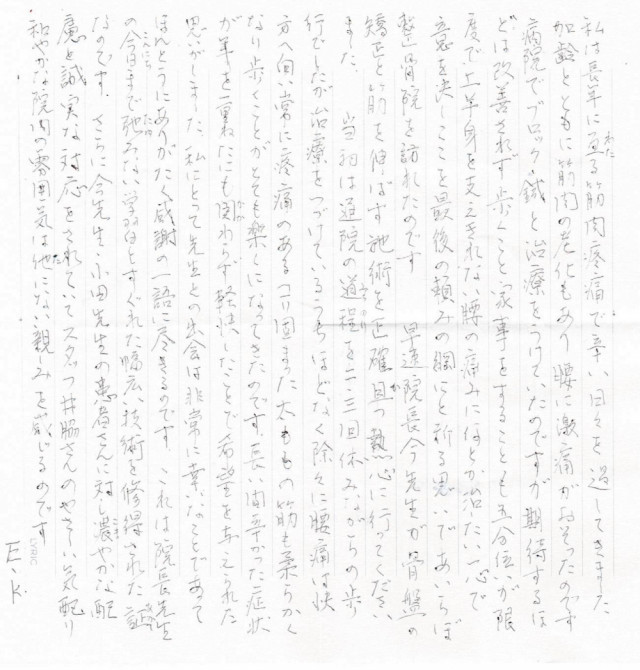 私は長年に亘る筋肉疼痛で辛い日々を過してきました
加齢とともに筋肉の老化もあり腰に激痛がおそったのです
病院でブロック、鍼と治療をうけていたのですが期待するほ
どは改善されず歩くこと家事をすることも五分位いが限
度で上半身を支えきれない腰の痛みにほとほと治たい一心で
意を決しここを最後の頼みの綱にと祈る思いであいらぼ
整骨院を訪れたのです 早速院長今先生が骨盤の
矯正と筋を伸ばす施術を正確且つ熱心に行ってください
ました 当初は通院の道程を二、三回休みながらの歩
行でしたが治療をつづけているうちほどなく除々に腰痛は快
方へ向い常に疼痛のある固まった太ももの筋も柔らかく
なり歩くことがとても楽くになってきたのです。長い間辛かった症状
が年を重ねたにも関わらず軽快したことで希望を与えられた
思いがしました 私にとって先生との出会は非常に幸なことであって
ほんとうにありがたく感謝の一語に尽きるのです。これは院長先生
の今日まで弛みない学ほとすぐれた幅広い技術を修得された証
なのです。さらに今先生・小田先生の患者さんに対し濃やかな配
慮と誠実な対応をされていてスタッフ井脇さんのやさしい気配り
和やかな院内の雰囲気は他にない親しみを感じるのです
E・K.